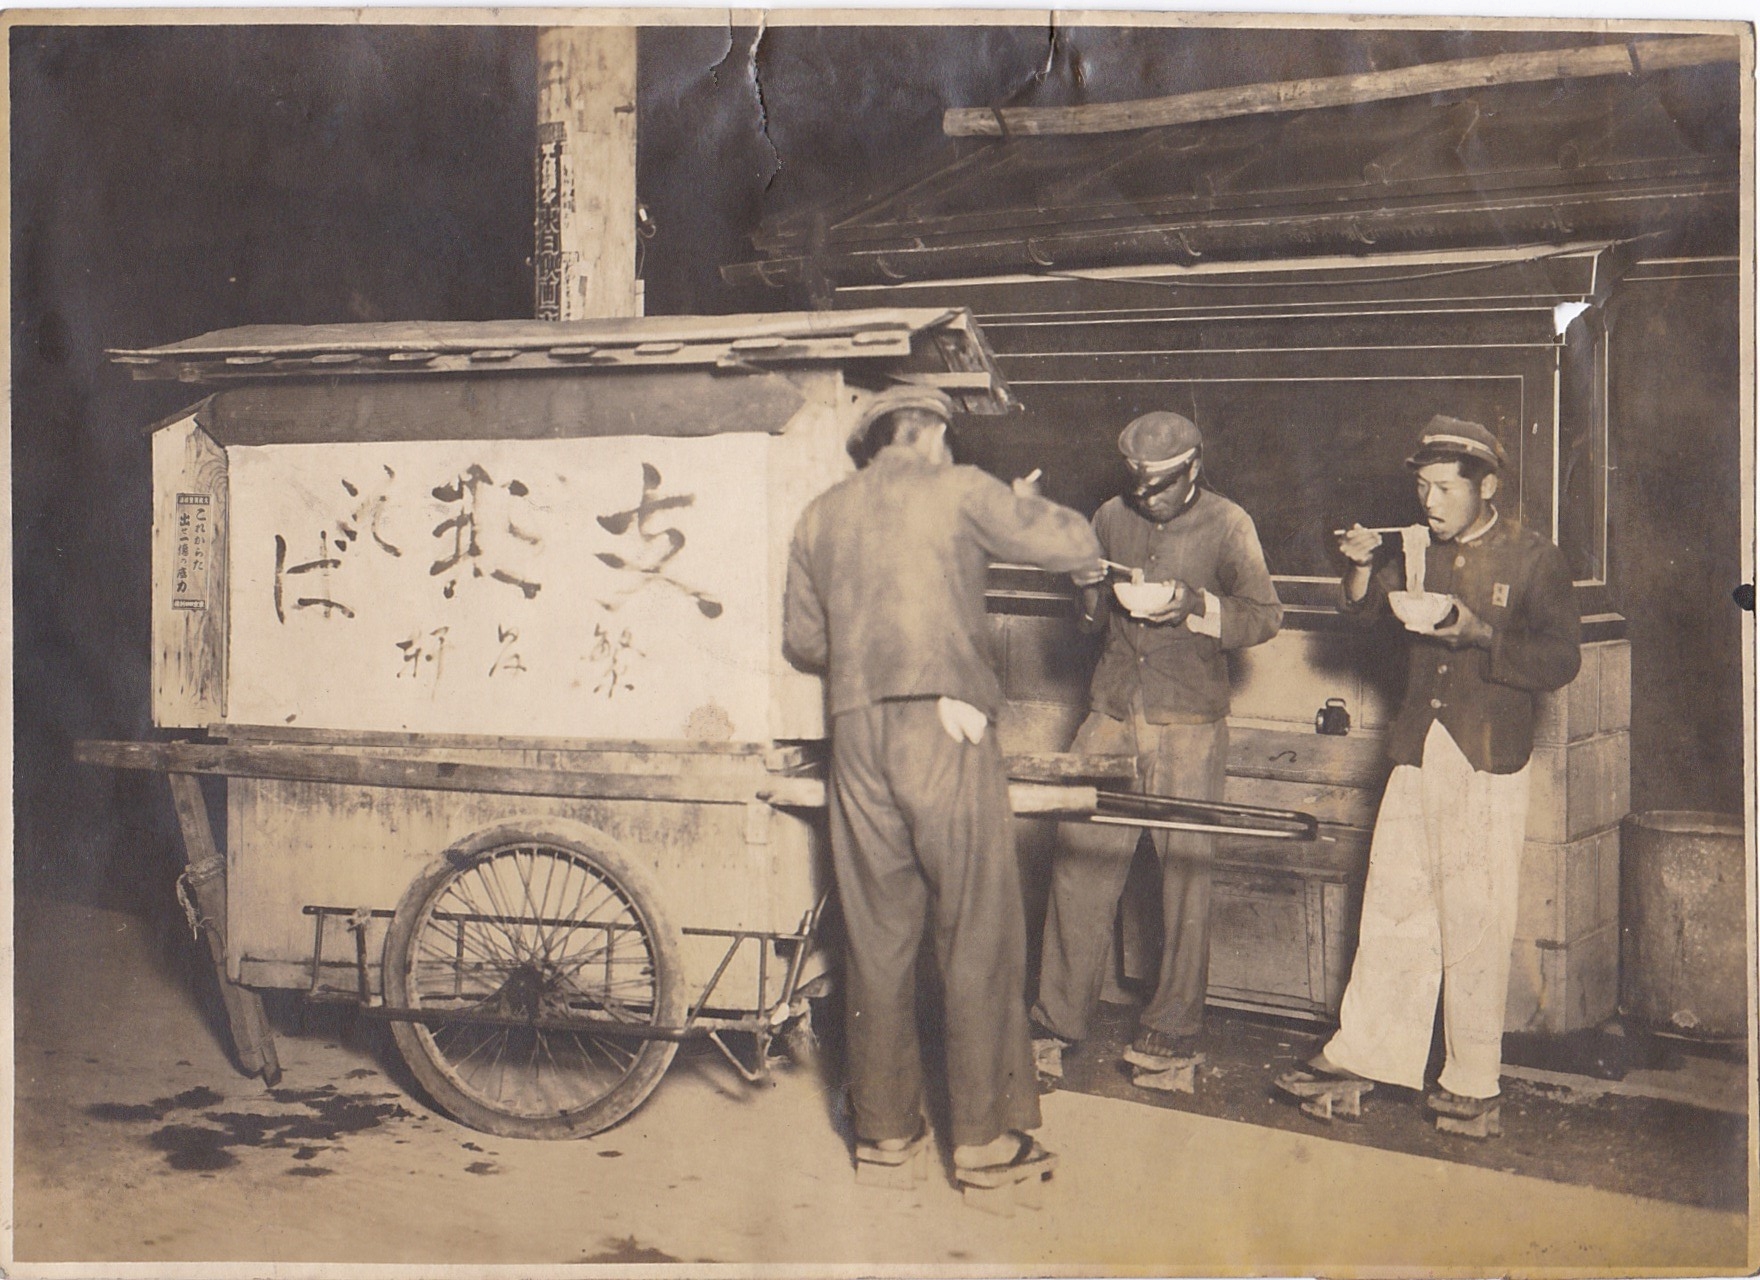 支那そば
繁昌軒
これからだ
出せ一億の底力